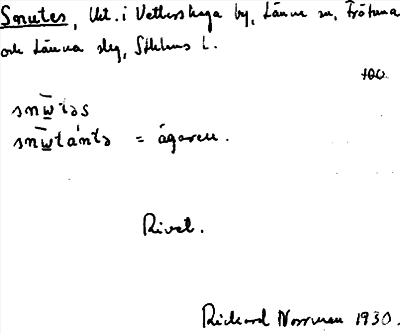 Snutes, Urt. i Vettershaga by, Länna sn, Frötuna
och Länna slg, Sthlms l.
snw̄təs
snw̄tántə = ägaren.
Rivet.
Rickard Norrman 1930.